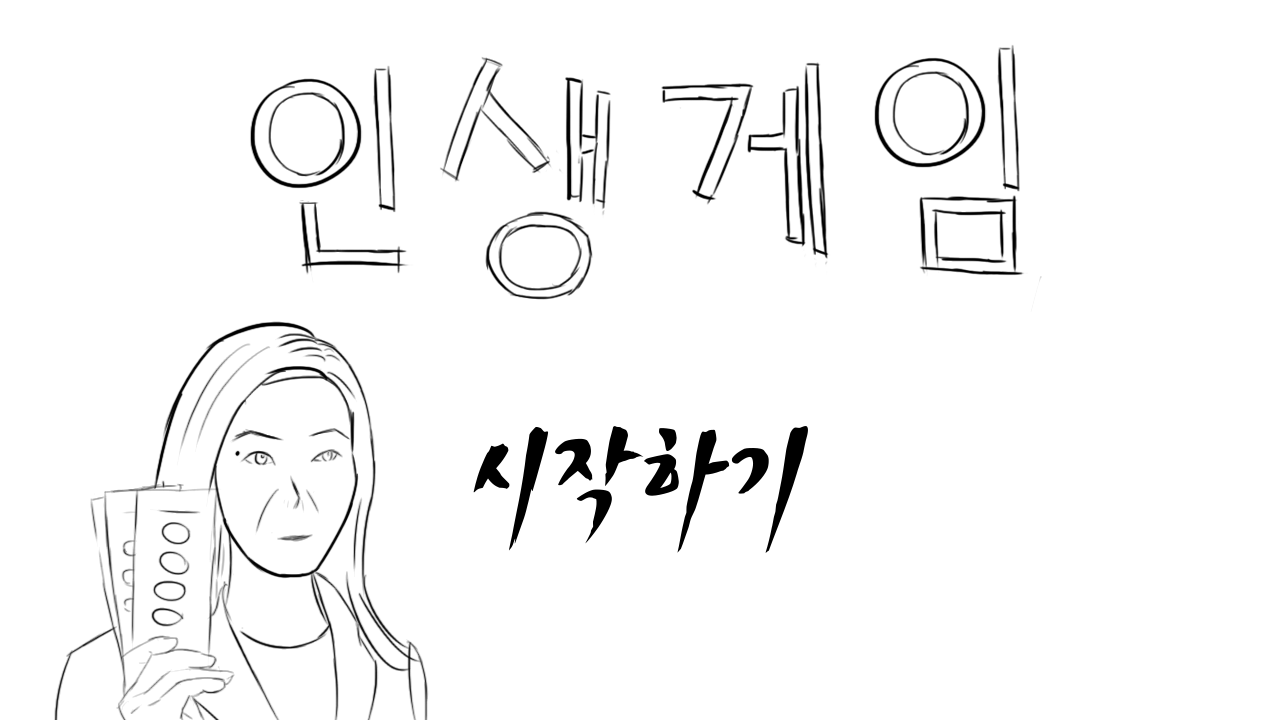 인생게임
시작하기